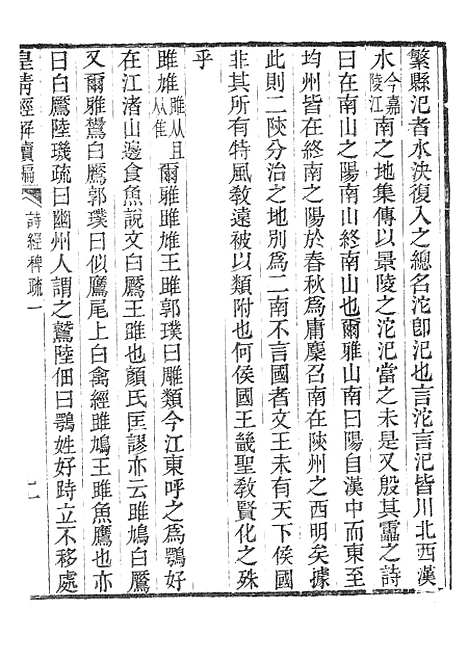 繁縣汜者水決復入之總名沱卽汜也言沱言汜皆川北西漢
水今嘉陵江南之地集傳以景陵之沱汜當之未是又殷其靁之詩
曰在南山之陽南山終南山也爾雅山南曰陽自漢中而東至
均州皆在終南之陽於春秋爲庸麇召南在陝州之西明矣據
此則二陝分治之地別爲二南不言國者文王未有天下侯國
非其所有特風敎遠被以類附也何侯國王畿聖敎賢化之殊
乎
雎鳩雎从且从隹爾雅雎鳩王雎郭璞曰雕類今江東呼之爲鶚好
在江渚山邊食魚說文白鷢王雎也顏氏匡謬亦云雎鳩白鷢
又爾雅鷢白鷢郭璞曰似鷹尾上白禽經雎鳩王雎魚鷹也亦
曰白鷢陸璣疏曰幽州人謂之鷲陸佃曰鶚姓好時立不移處
皇淸經解續編
詩經稗疏一
二